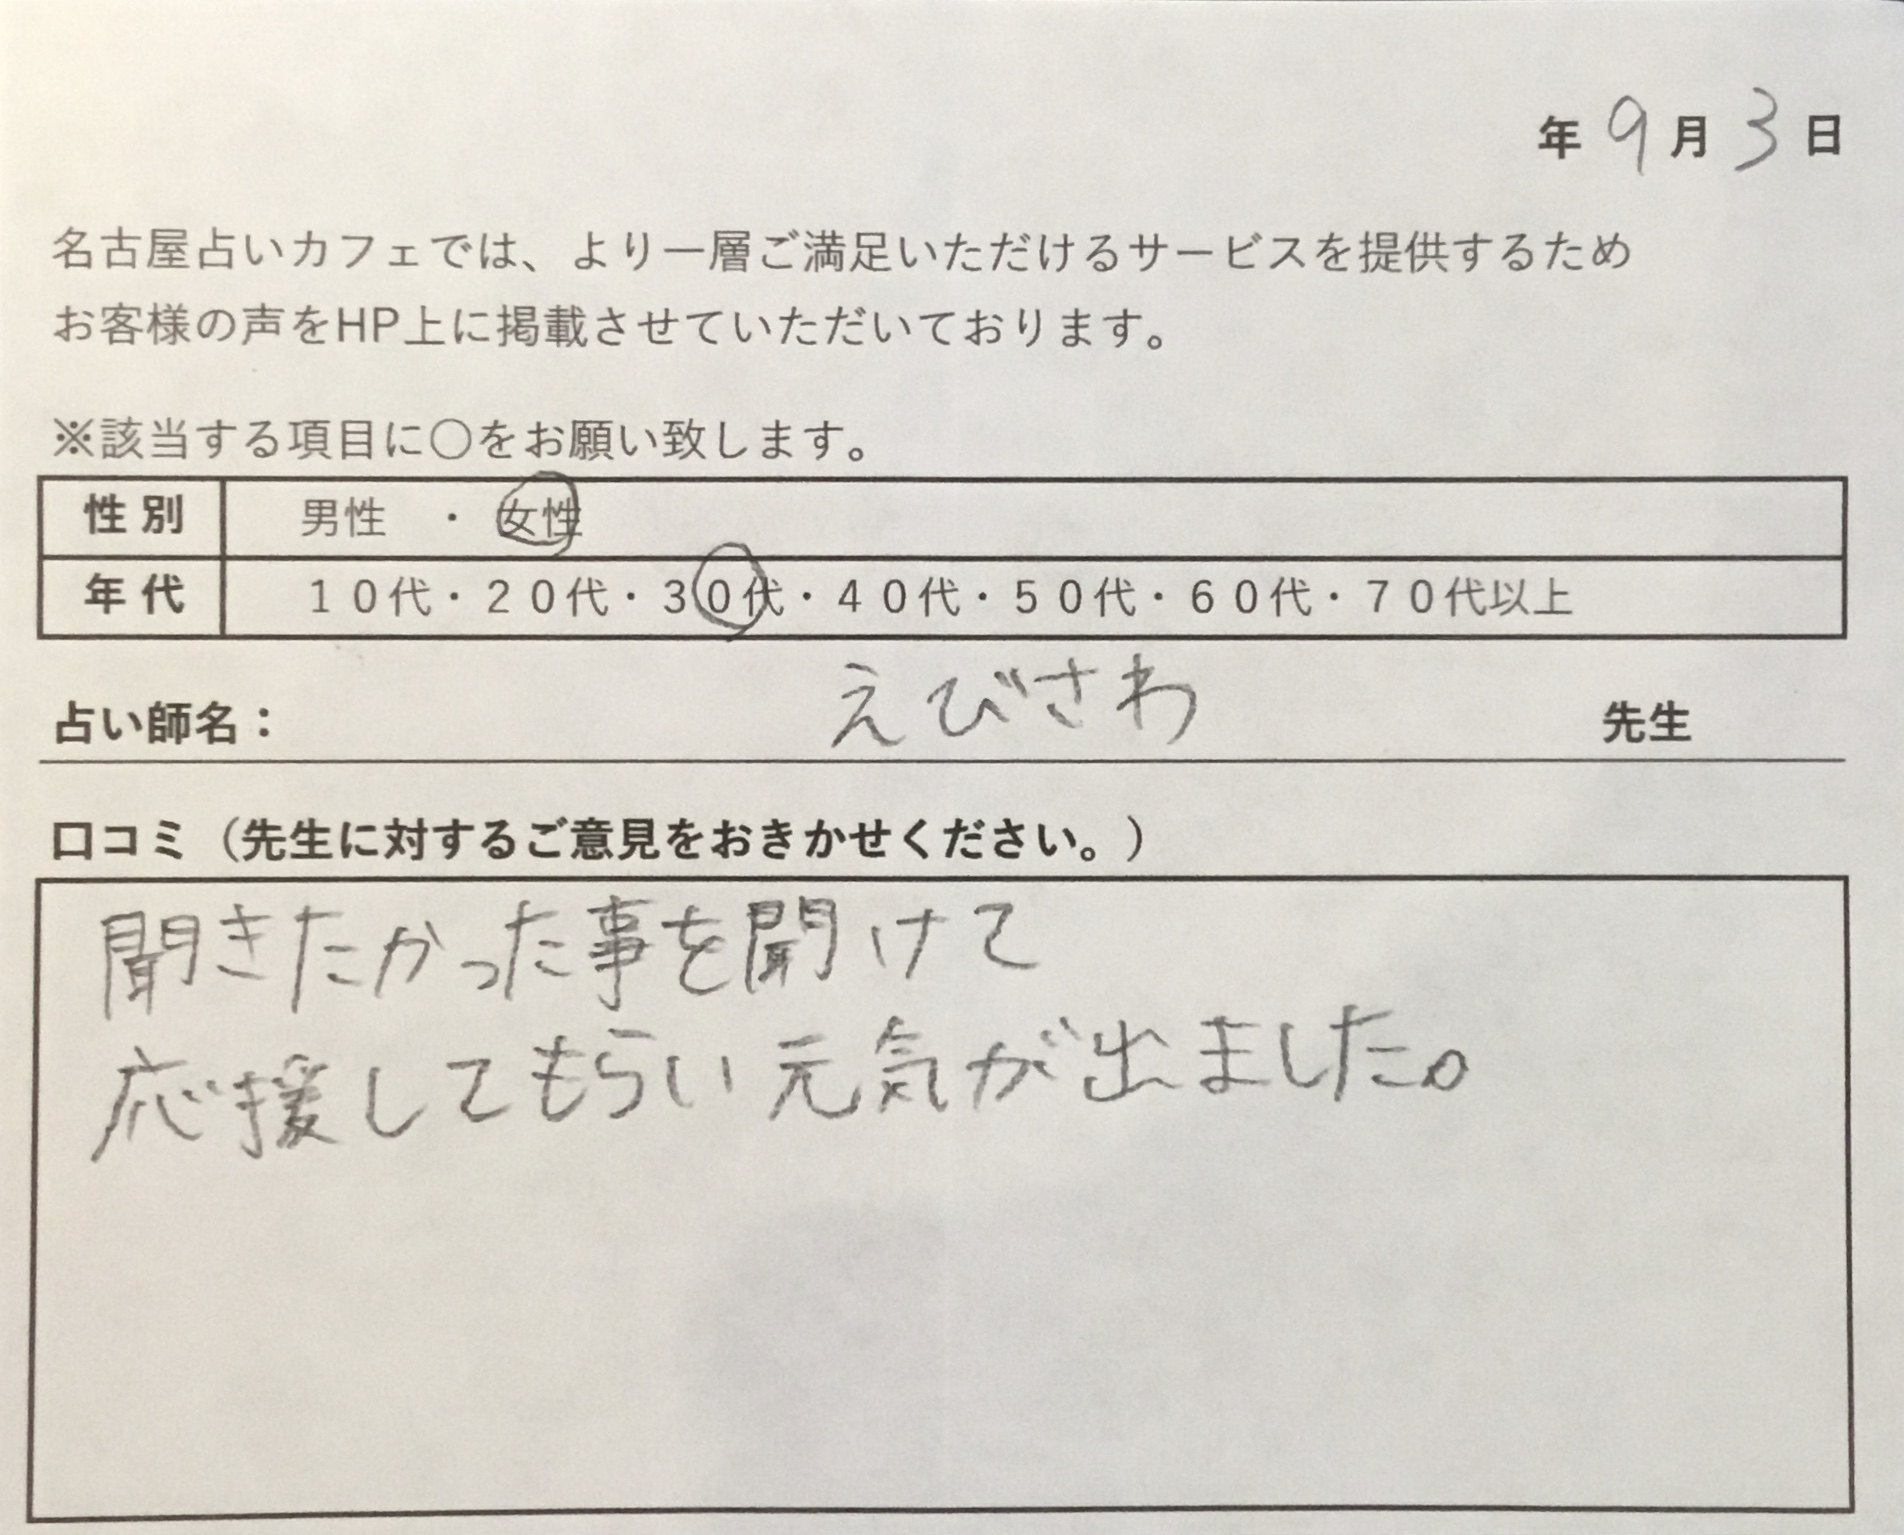 年 9 月 3 日
名古屋占いカフェでは、より一層ご満足いただけるサービスを提供するため
お客様の声をHP上に掲載させていただいております。
※該当する項目に〇をお願い致します。
性別 男性 ・ 女性
年代 10代・20代・30代・40代・50代・60代・70代以上
占い師名： えびさわ 先生
口コミ（先生に対するご意見をおきかせください。）
聞きたかった事を聞けて
応援してもらい元気が出ました。